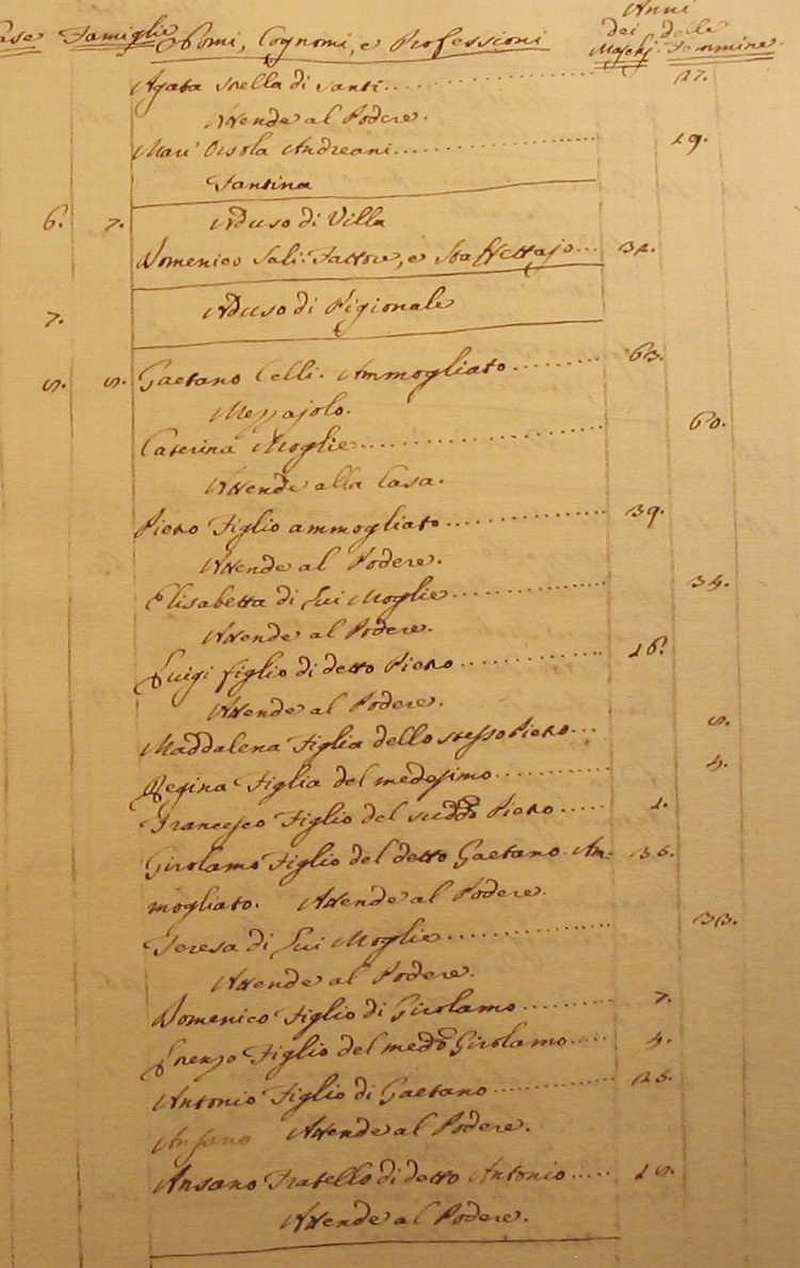 Case Famiglie Nomi, Cognomi, e Professioni Anni dei Maschj. delle Femmine.
Agata Stella di Santi 17.
Attende al Podere.
Mari' Orsola Andreani 19.
Santina
6. 7. Aduso di Villa
Domenico Sali. Fattore, e 32.
7. Aduso di Pigionale
Gaetano Celli. Ammogliato 63.
Mezzajolo.
Caterina Moglie 60.
Attende alla Casa.
Piero Figlio ammogliato 39.
Attende al Podere.
Elisabetta di Lui Moglie 34.
Attende al Podere.
Luigi figlio di detto Piero 16.
Attende al Podere.
Maddalena Figlia dello stesso Piero
Regina Figlia del medesimo 4.
Francesco Figlio del sudd.o Piero 1.
Girolamo Figlio del detto Gaetano Am-
mogliato. Attende al Podere.
Teresa di Lui Moglie 33.
Attende al Podere.
Domenico Figlio di Girolamo 7.
Lorenzo Figlio del med.o Girolamo 4.
Antonio Figlio di Gaetano
Ansano Attende al Podere.
Ansano Fratello di detto Antonio
Attende al Podere.